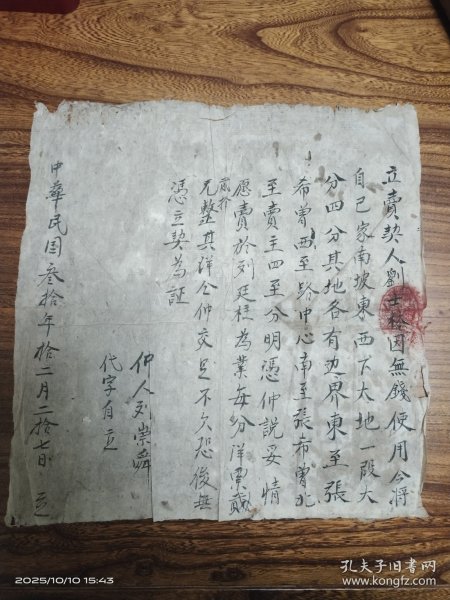 立賣契人劉士松因無錢使用今將
自己家南坡東西下大地一段大
分四分其地各有边界東至張
希曾西至路中心南至張希曾北
至賣主四至分明憑仲說妥情
愿賣於刘廷桂為業每分洋
貳拾
元整其洋仝仲交足不欠恐後無
憑立契為証
仲人刘崇舜
代字自立
中華民国叁拾年拾二月二拾七日 立
2025/10/10 15:43
孔夫子旧书网
www.kongfz.com